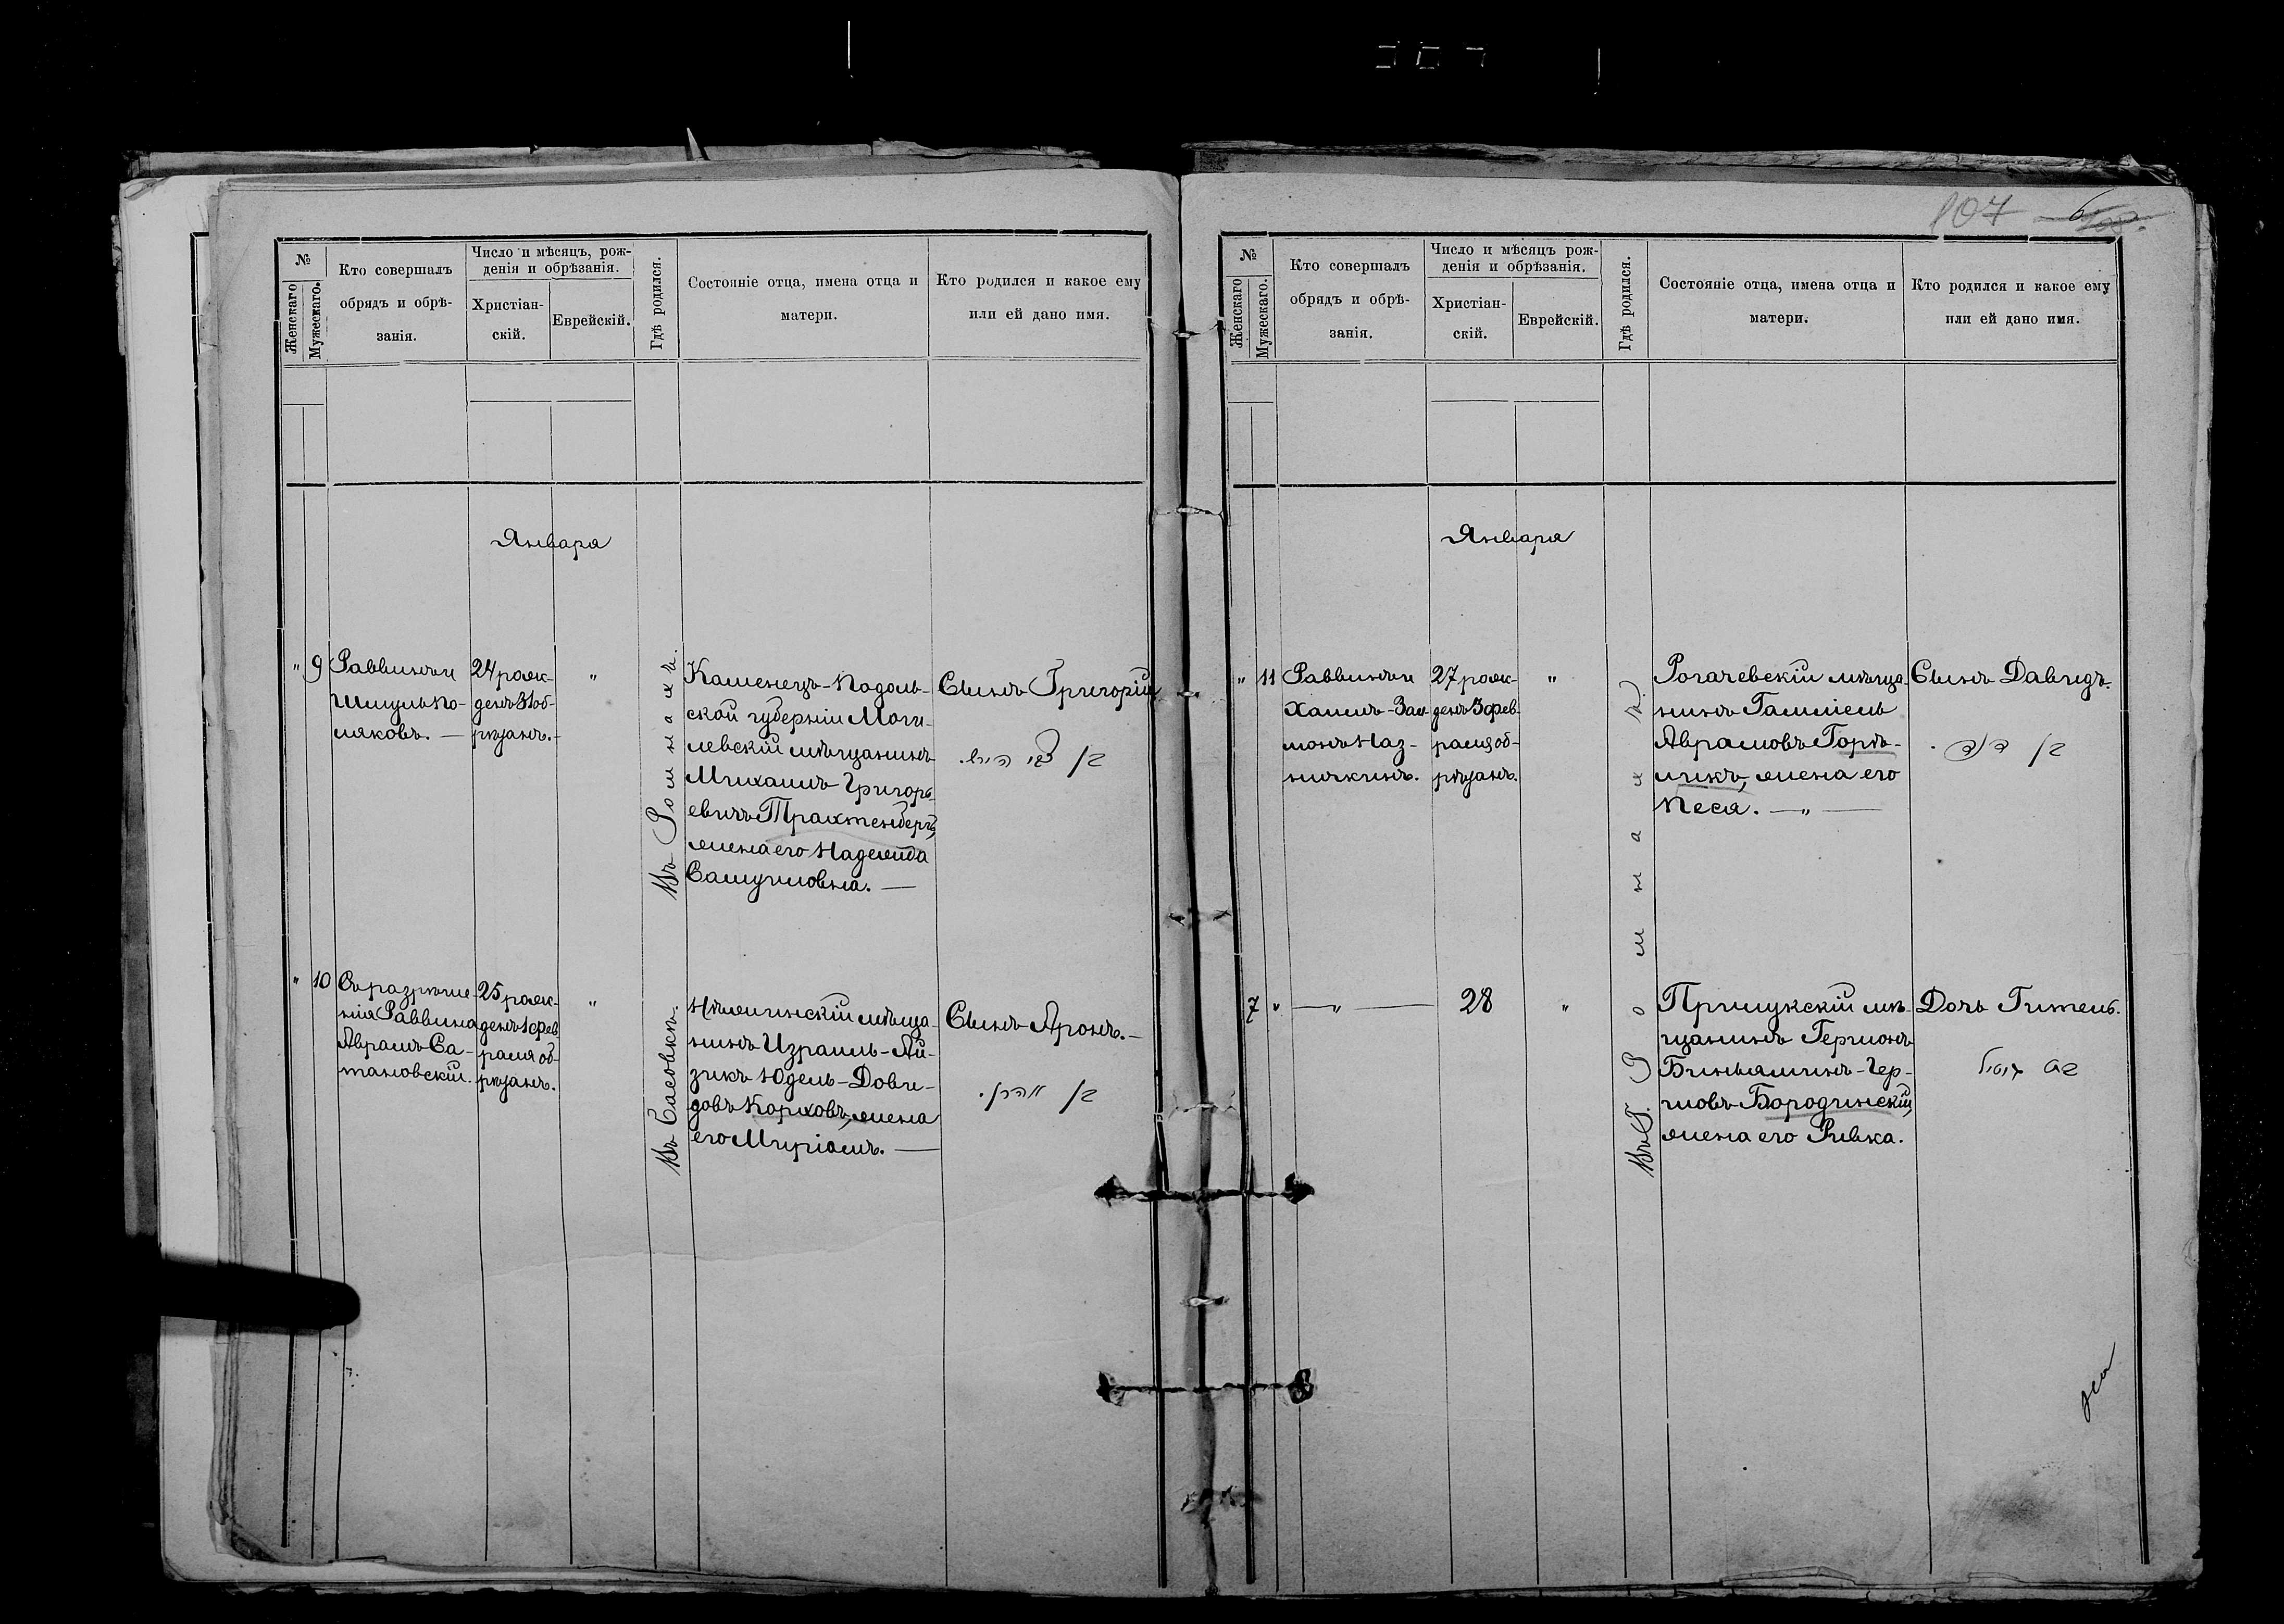 107
№
Женскаго
Мужескаго.
Кто совершалъ
обрядъ и обрѣ-
занія.
Число и мѣсяцъ, рож-
денія и обрѣзанія.
Христіан-
скій.
Еврейскій.
Гдѣ родился.
Состояніе отца, имена отца и
матери.
Кто родился и какое ему
или ей дано имя.
Января
" 9
Раввинъ и
Шмуль По-
ляковъ. —
24 рож-
денъ 31 об-
рѣзанъ. –
"
Въ Ромнахъ.
Каменецъ-Подоль-
ской губерніи Моги-
левскій мѣщанинъ
Михаилъ Григорь-
евичъ Трахтенбергъ,
жена его Надежда
Самуиловна. —
Сынъ Григорій
בן צבי הירש.
" 10
Съ разрѣше-
нія Раввина
Аврамъ Са-
тановскій.
25 рож-
денъ 1 фев
раля об-
рѣзанъ.
"
Въ Засовкѣ.
Нѣжинскій мѣща-
нинъ Израиль-Ай-
зикъ Юдель-Дови-
довъ Корховъ, жена
его Миріамъ. —
Сынъ Аронъ. –
בן אהרן.
№
Женскаго
Мужескаго.
Кто совершалъ
обрядъ и обрѣ-
занія.
Число и мѣсяцъ рож-
денія и обрѣзанія.
Христіан-
скій.
Еврейскій.
Гдѣ родился.
Состояніе отца, имена отца и
матери.
Кто родился и какое ему
или ей дано имя.
Января
" 11
Раввинъ и
Хаимъ-Зал-
монъ Наз-
27 рож-
денъ 3 фев-
раля об-
рѣзанъ.
"
Въ Г. Ромнахъ.
Рогачевскій мѣща-
нинъ Гамшіель
Аврамовъ Горѣ-
ликъ, жена его
Песя. — " —
Сынъ Давидъ.
בן דוד.
7 "
— " —
28
"
Прилукскій мѣ-
щанинъ Гершонъ
Биньяминъ-Гер-
шовъ Бородинскій,
жена его Ривка.
Дочь Гитель.
בת גיטל